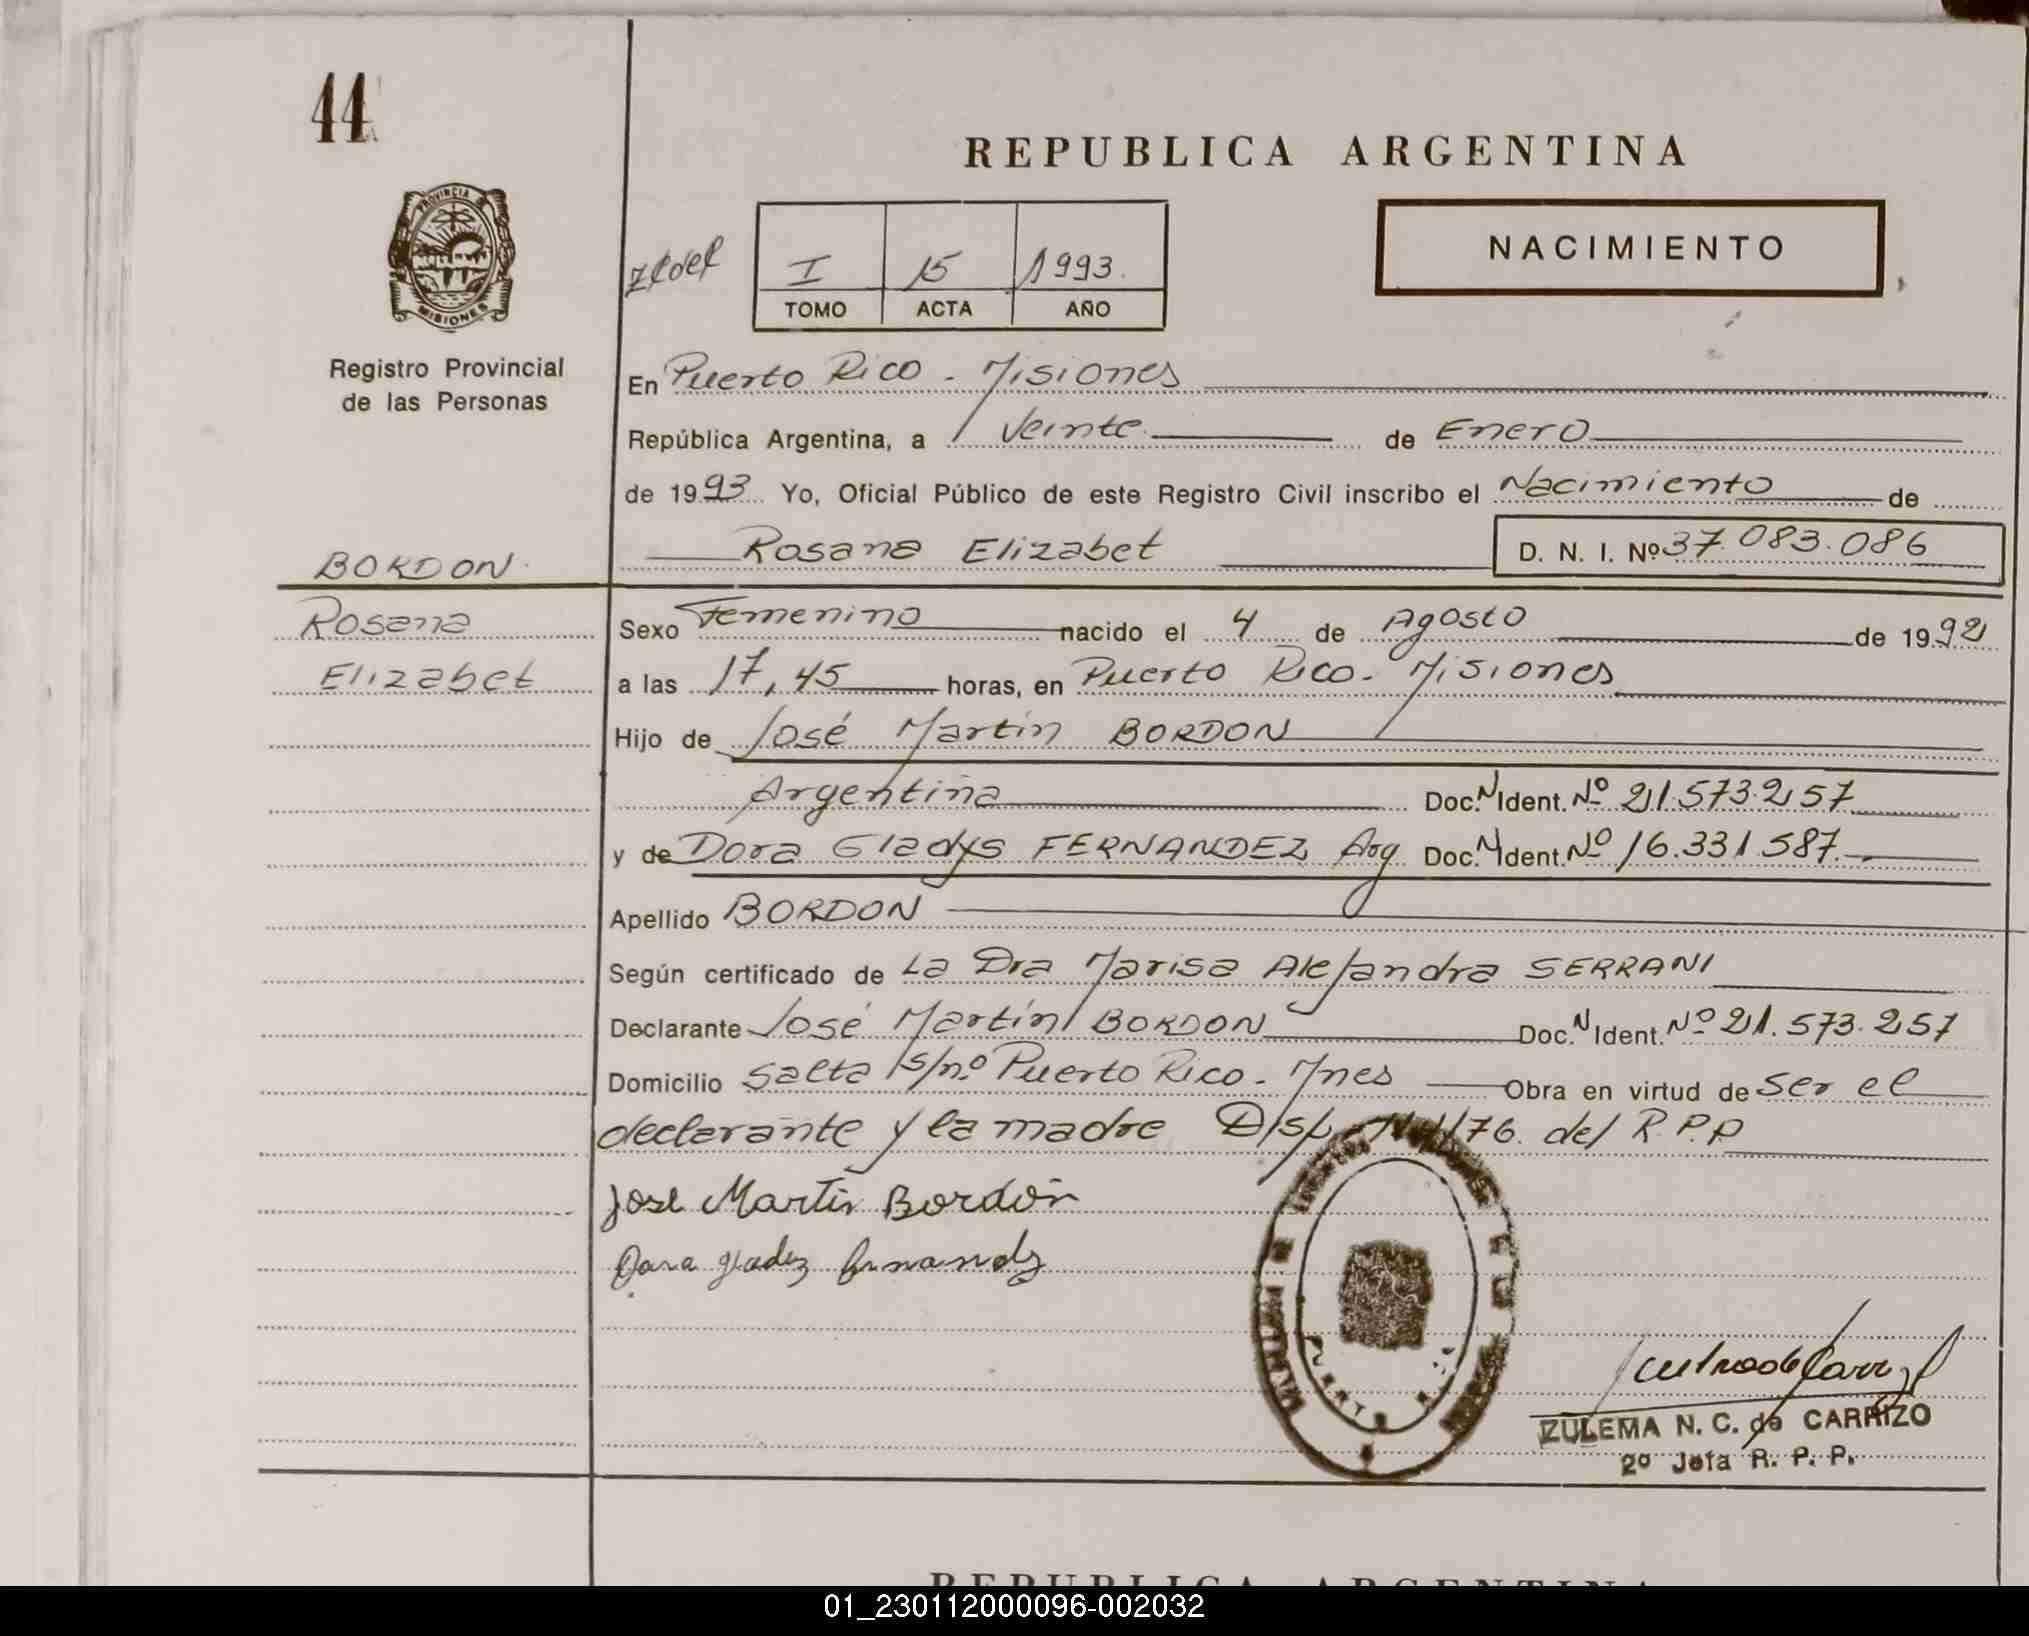 44
REPUBLICA ARGENTINA
NACIMIENTO
I 15 1993.
TOMO ACTA AÑO
PROVINCIA DE
MISIONES
Registro Provincial
de las Personas
En Puerto Rico - Misiones
República Argentina, a Veinte de Enero
de 1993 Yo, Oficial Público de este Registro Civil inscribo el Nacimiento de
BORDON. Rosana Elizabet D. N. I. Nº 37.083.086
Rosana Sexo Femenino nacido el 4 de Agosto de 1992
Elizabet a las 17,45 horas, en Puerto Rico - Misiones
Hijo de José Martín BORDON
Argentina Doc. N Ident. Nº 21.573.257
y de Dora Gladys FERNANDEZ Arg Doc. N Ident. Nº 16.331.587.
Apellido BORDON
Según certificado de La Dra Marisa Alejandra SERRANI
Declarante José Martín BORDON Doc. N Ident. Nº 21.573.257
Domicilio Salta s/nº Puerto Rico - Mnes Obra en virtud de ser el
declarante y la madre Disp. /76. del R.P.P
Jose Martin Bordón
ZULEMA N. C. de CARRIZO
2º Jefa R. P. P.
REPUBLICA ARGENTINA
01_230112000096-002032